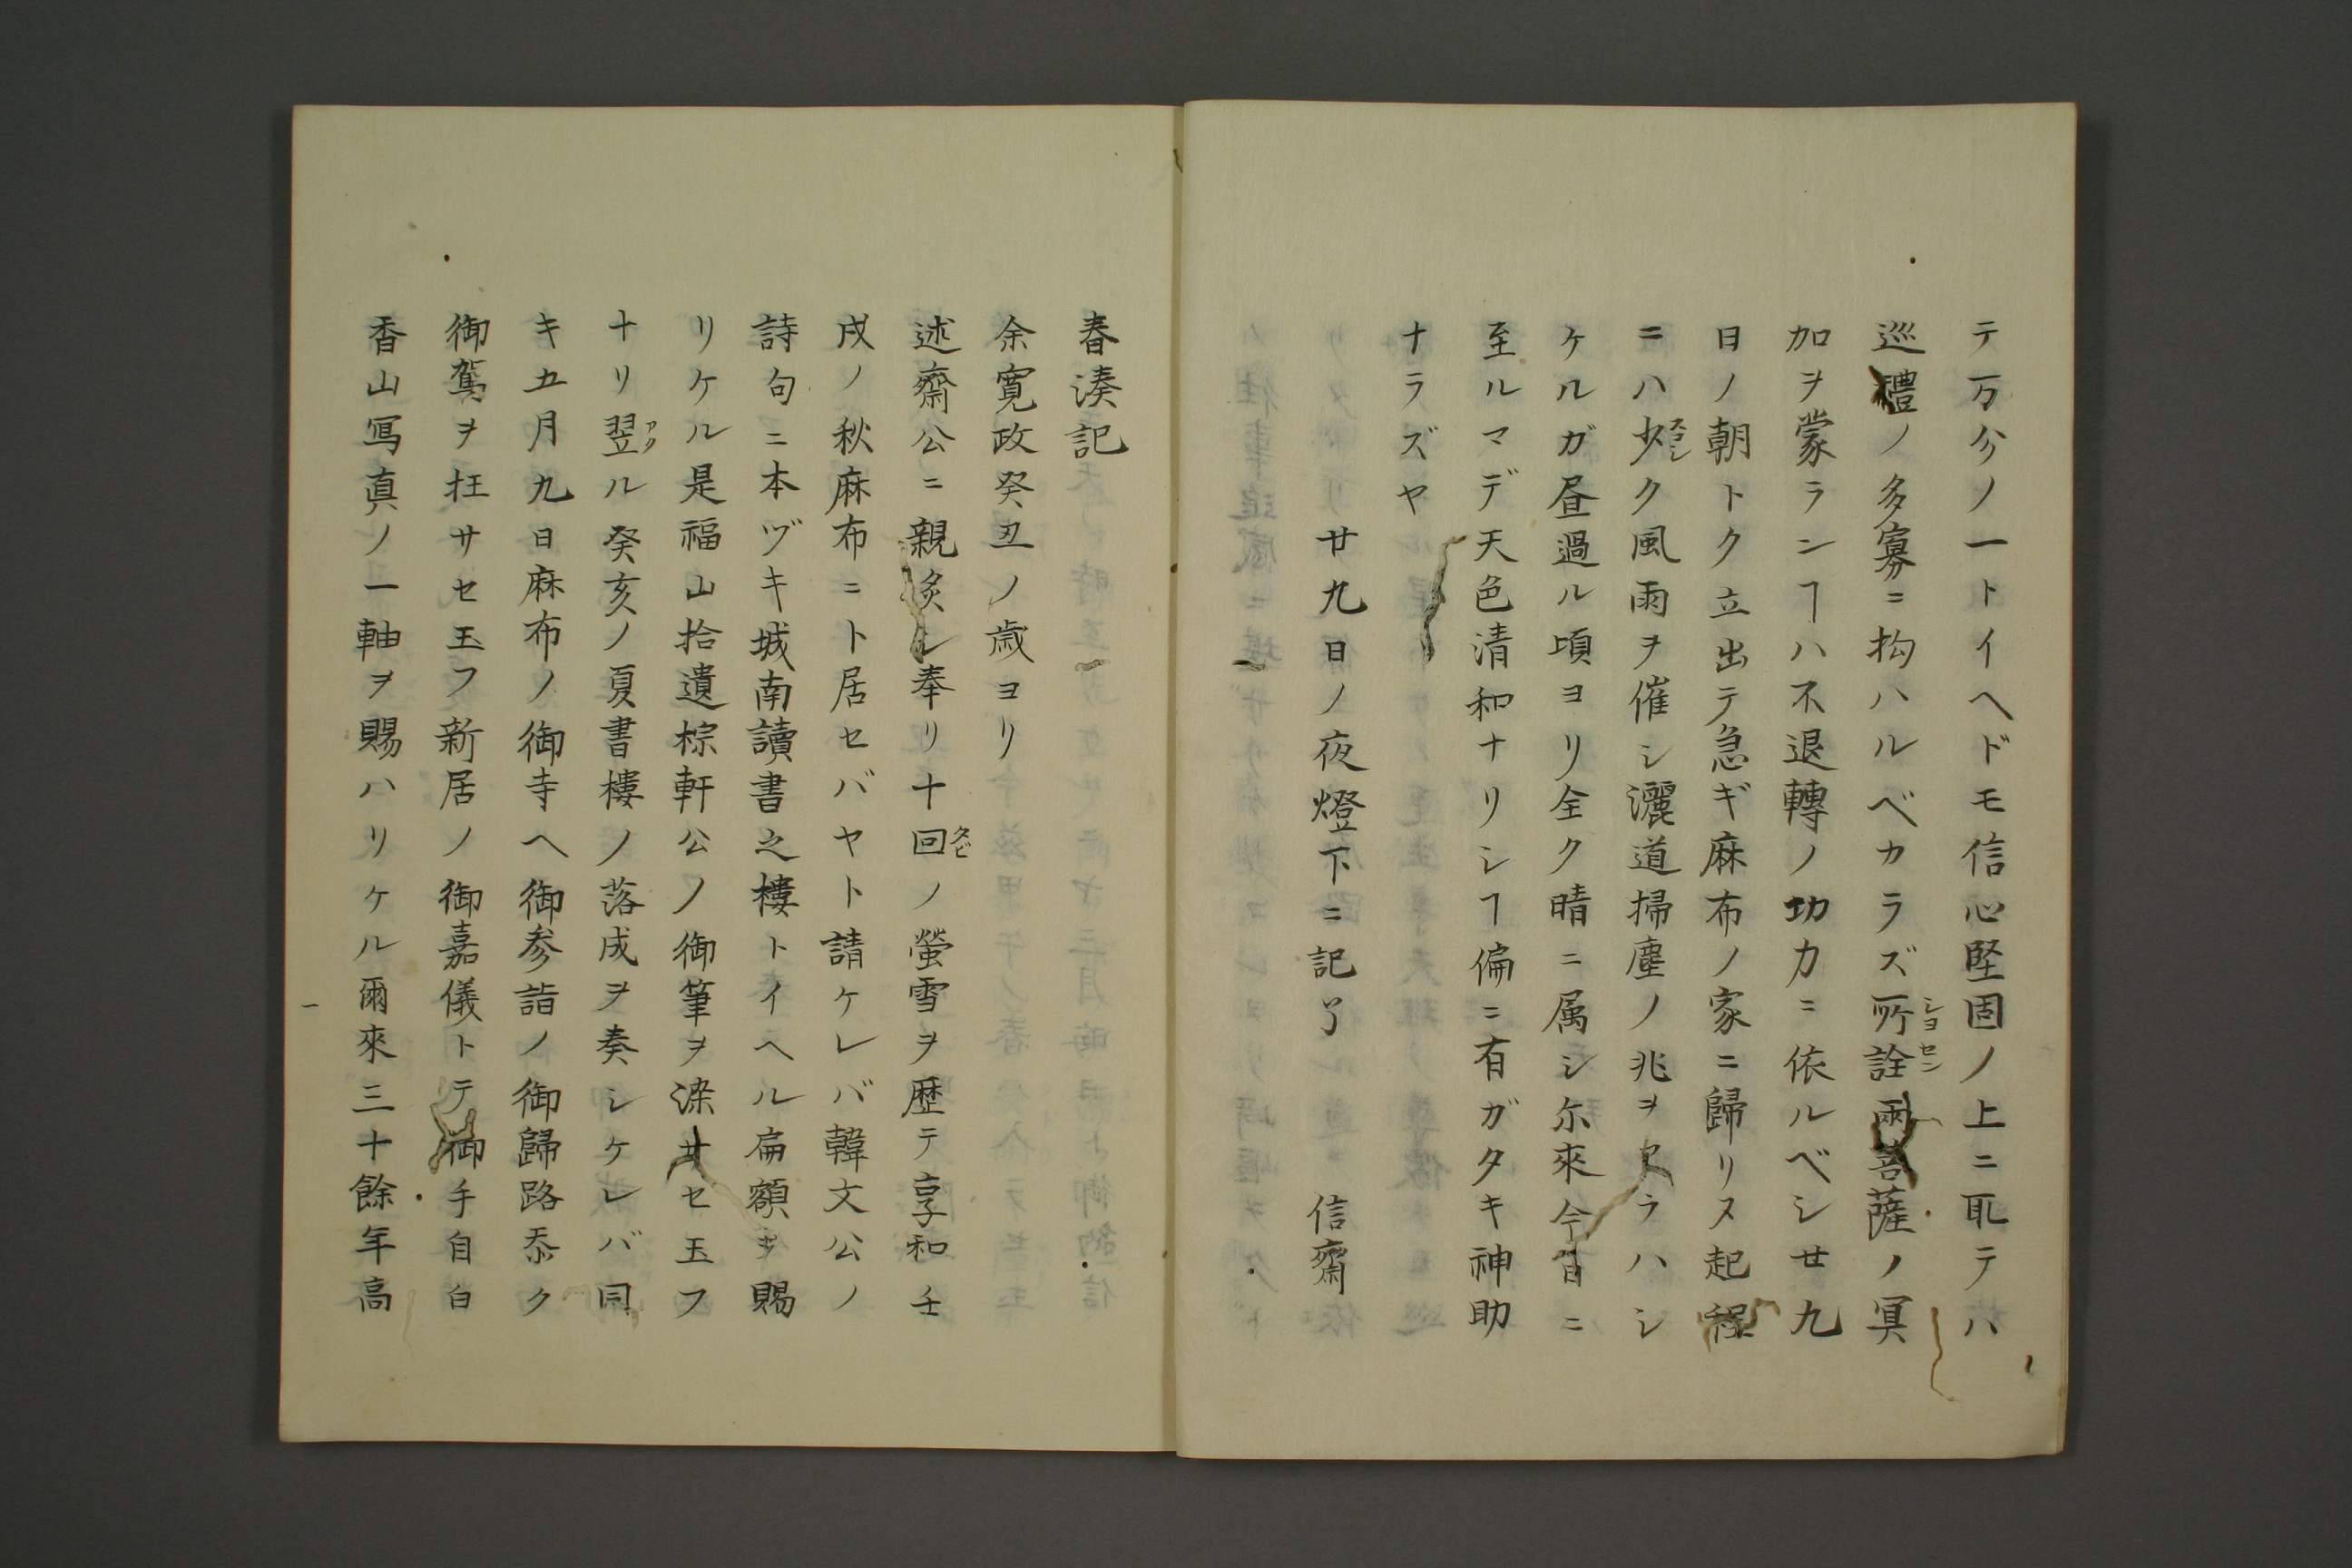 テ万分ノ一トイヘドモ信心堅固ノ上ニ取テハ
巡禮ノ多寡ニ拘ハルベカラズ所詮兩菩薩ノ冥
ショセン
加ヲ蒙ランヿハ不退轉ノ功力ニ依ルベシ廿九
日ノ朝トク立出テ急ギ麻布ノ家ニ歸リヌ起程
ニハ少ク風雨ヲ催シ灑道掃塵ノ兆ヲアラハシ
スコシ
ケルガ昼過ル頃ヨリ全ク晴ニ属シ尓來今日ニ
至ルマデ天色清和ナリシヿ偏ニ有ガタキ神助
ナラズヤ
廿九日ノ夜燈下ニ記了 信齋
春湊記
余寛政癸丑ノ歳ヨリ
述齋公ニ親炙シ奉リ十回ノ螢雪ヲ歴テ享和壬
タビ
戌ノ秋麻布ニト居セバヤト請ケレバ韓文公ノ
詩句ニ本ヅキ城南讀書之樓トイヘル扁額ヲ賜
リケル是福山拾遺棕軒公ノ御筆ヲ染サセ玉フ
ナリ翌ル癸亥ノ夏書樓ノ落成ヲ奏シケレバ同
アク
キ五月九日麻布ノ御寺ヘ御参詣ノ御歸路忝ク
御駕ヲ枉サセ玉フ新居ノ御嘉儀トテ御手自白
香山冩真ノ一軸ヲ賜ハリケル爾來三十餘年高